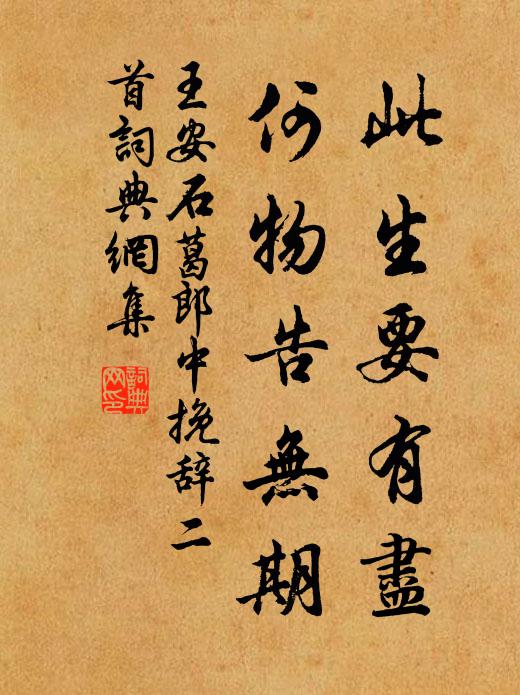 此生要有盡
何物告無期
王安石葛郎中挽辞二
首詞典網集
詞典
网印